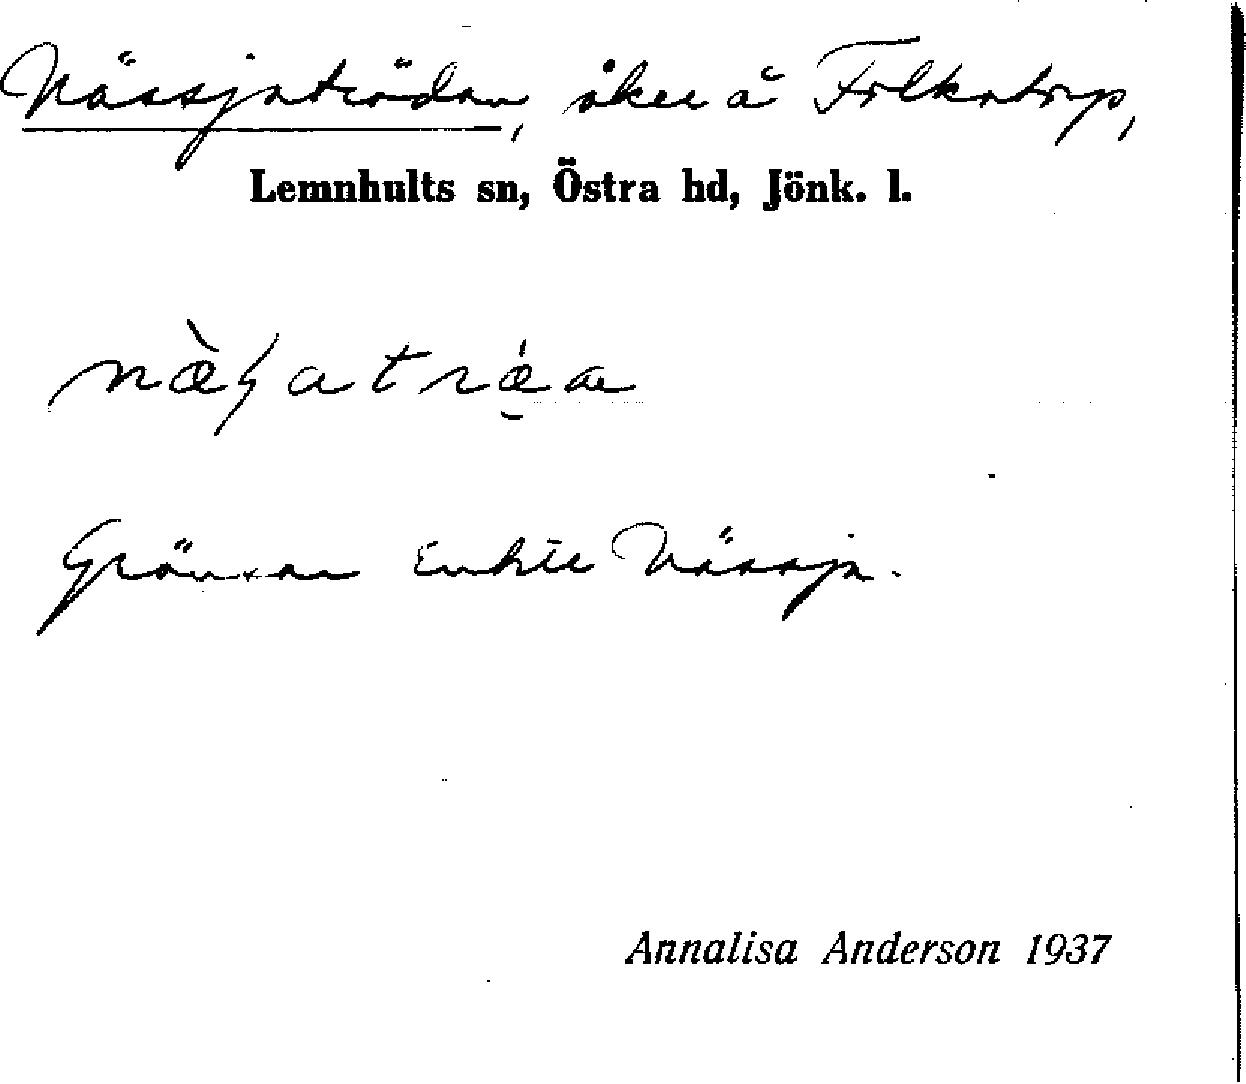 Nässjaträdan, åker å Folkatorp,
Lemnhults sn, Östra hd, Jönk. l.
Gränsar intill Nässja.
Annalisa Anderson 1937